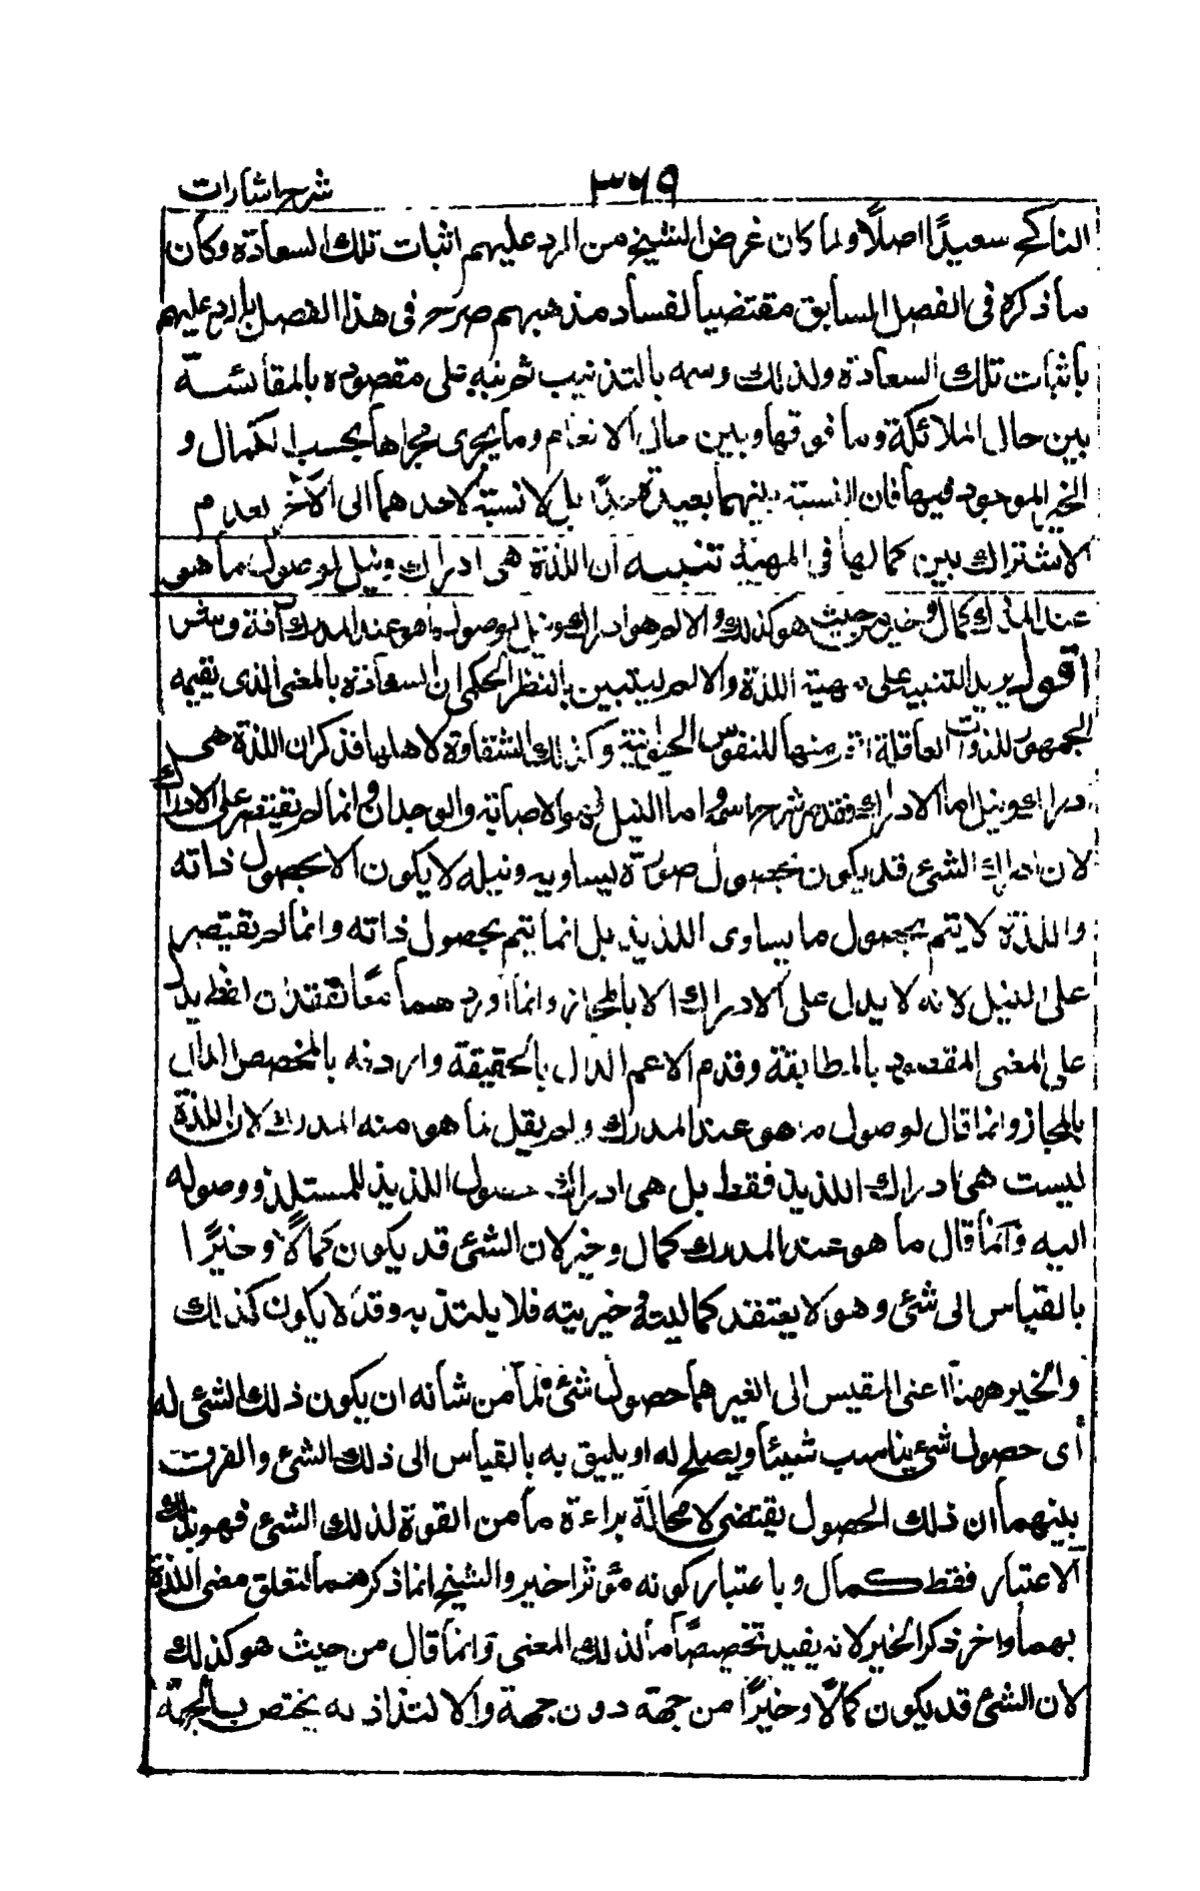 شرح اشارات
٣٦٩
الناكح سعيدًا اصلًا ولما كان غرض الشيخ من الرد عليهم اثبات تلك السعادة وكان
ما ذكره فى الفصل السابق مقتضيا لفساد مذهبهم صرح فى هذا الفصل بالرد عليهم
باثبات تلك السعادة ولذلك وسمه بالتذنيب ثم نبه على مقصوده بالمقائسة
بين حال الملائكة وما فوقها وبين حال الانعام وما يجرى مجراها بحسب الكمال و
الخير الموجود فيها فان النسبة بينهما بعيدة جدًا بل لا نسبة لاحدهما الى الآخر لعدم
الاشتراك بين كمالها فى المهية تنبيه ان اللذة هى ادراك ونيل لوصول ما هو
عند المدرك كمال وخير من حيث هو كذلك والالم هو ادراك ونيل لوصول ما هو عند المدرك آفة وشر
اقول يريد التنبيه على مهية اللذة والالم ليتبين بالنظر الحكمى ان السعادة بالمعنى الذى يقيمه
الجمهور للذوات العاقلة اتم منها للنفوس الحيوانية وكذلك الشقاوة لاهلها فذكر ان اللذة هى
ادراك ونيل اما الادراك فقد مر شرح اسمه واما النيل فهو الاصابة والوجدان وانما لم يقتصر على الادراك
لان ادراك الشئ قد يكون بحصول صورة يساويه ونيله لا يكون الا بحصول ذاته
واللذة لا يتم بحصول ما يساوى اللذيذ بل انما يتم بحصول ذاته وانما لم يقتصر
على النيل لانه لا يدل على الادراك الا بالمجاز وانما اورد هما معًا لفقدان لفظ يدل
على المعنى المقصود بالمطابقة وقدم الاعم الدال بالحقيقة واردفه بالمخصص الدال
بالمجاز وانما قال لوصول ما هو عند المدرك ولم يقل لما هو منه المدرك لان اللذة
ليست هى ادراك اللذيذ فقط بل هى ادراك حصول اللذيذ للمستلذ ووصوله
اليه وانما قال ما هو عند المدرك كمال وخير لان الشئ قد يكون كمالًا وخيرًا
بالقياس الى شئ وهو لا يعتقد كماليته وخيريته فلا يلتذ به وقد لا يكون كذلك
والخير ههنا اعنى المقيس الى الغير هما حصول شئ لما من شانه ان يكون ذلك الشئ له
أى حصول شئ يناسب شيئا ويصلح له او يليق به بالقياس الى ذلك الشئ والفرق
بينهما ان ذلك الحصول يقتضى لا محالة براءة ما من القوة لذلك الشئ فهو بذلك
الاعتبار فقط كمال وباعتبار كونه مؤثرا خير والشيخ انما ذكرهما لتعلق معنى اللذة
بهما واخر ذكر الخير لانه يفيد تخصيصًا ما لذلك المعنى وانما قال من حيث هو كذلك
لان الشئ قد يكون كمالًا وخيرًا من جهة دون جهة والالتذاذ به يختص بالجهة